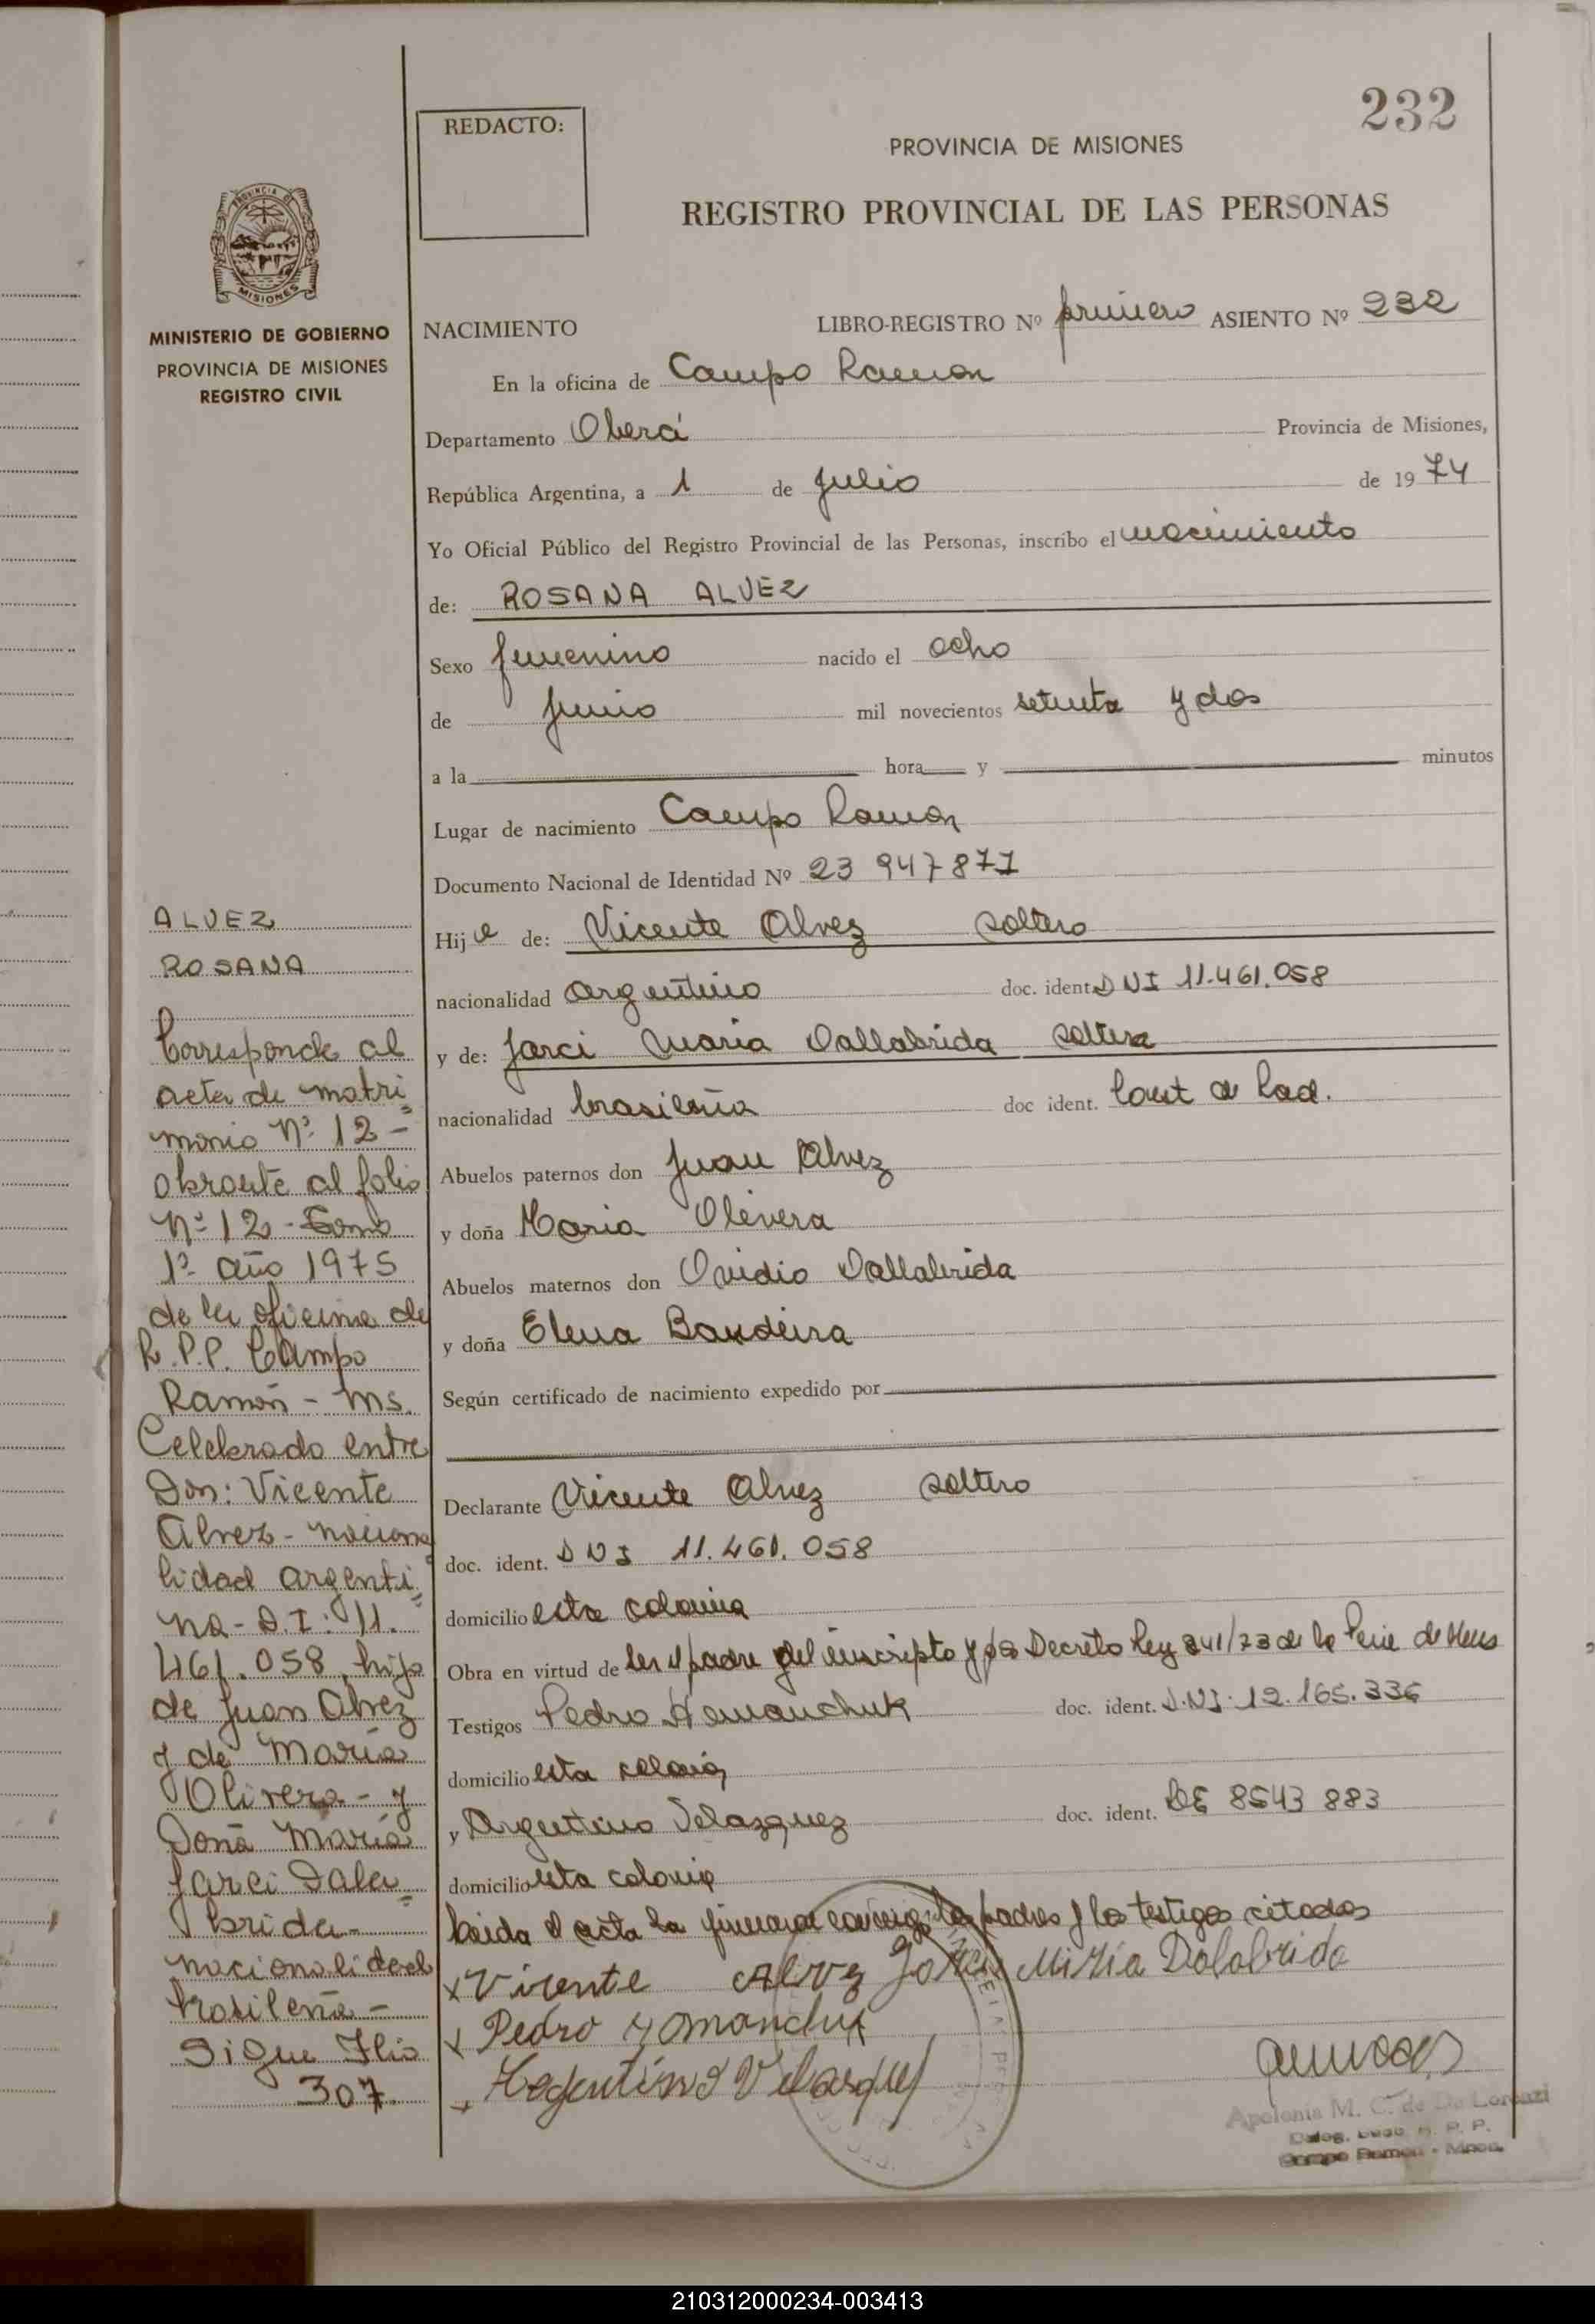 232
REDACTO:
PROVINCIA DE MISIONES
REGISTRO PROVINCIAL DE LAS PERSONAS
PROVINCIA DE
MISIONES
MINISTERIO DE GOBIERNO
PROVINCIA DE MISIONES
REGISTRO CIVIL
NACIMIENTO LIBRO-REGISTRO Nº primero ASIENTO Nº 232
En la oficina de Campo Ramon
Departamento Oberá Provincia de Misiones,
República Argentina, a 1 de julio de 1974
Yo Oficial Público del Registro Provincial de las Personas, inscribo el nacimiento
de: ROSANA ALVEZ
Sexo femenino nacido el ocho
de junio mil novecientos setenta y dos
a la hora y minutos
Lugar de nacimiento Campo Ramon
Documento Nacional de Identidad Nº 23 947871
Hija de: Vicente Alvez soltero
nacionalidad argentino doc. ident. DNI 11.461.058
y de: Jarci Maria Dallabrida soltera
nacionalidad brasileña doc ident. de Rad.
Abuelos paternos don Juan Alvez
y doña Maria Olivera
Abuelos maternos don Ovidio Dallabrida
y doña Elena Bandeira
Según certificado de nacimiento expedido por
Declarante Vicente Alvez soltero
doc. ident. DNI 11.461.058
domicilio esta colonia
Obra en virtud de ser el padre del inscripto y Decreto Ley 341/73 de la de Mnes
Testigos Pedro doc. ident. D.N.I. 12.165.336
domicilio esta colonia
y Argentino Velazquez doc. ident. DE 8543 883
domicilio esta colonia
Leida el acta la firmaron conmigo los padres y los testigos citados
x Vicente Alvez Jarci Maria Dalabrida
x Pedro
x Argentino Velasquez
Apolonia M. C. de De Lorenzi
Deleg. R. P. P.
Campo Ramon - Mnes.
ALVEZ
ROSANA
Corresponde al
acta de matri=
monio Nº 12 -
obrante al folio
Nº 12 - Tomo
1º año 1975
de la oficina de
R.P.P. Campo
Ramón - Ms.
Celebrado entre
Don: Vicente
Alvez - naciona
lidad argenti=
na - D.I: 11.
461.058, hijo
de Juan Alvez
y de Maria
Olivera - y
Doña Maria
Jarci Dala=
brida -
nacionalidad
brasilena -
Sigue Flio
307.
210312000234-003413